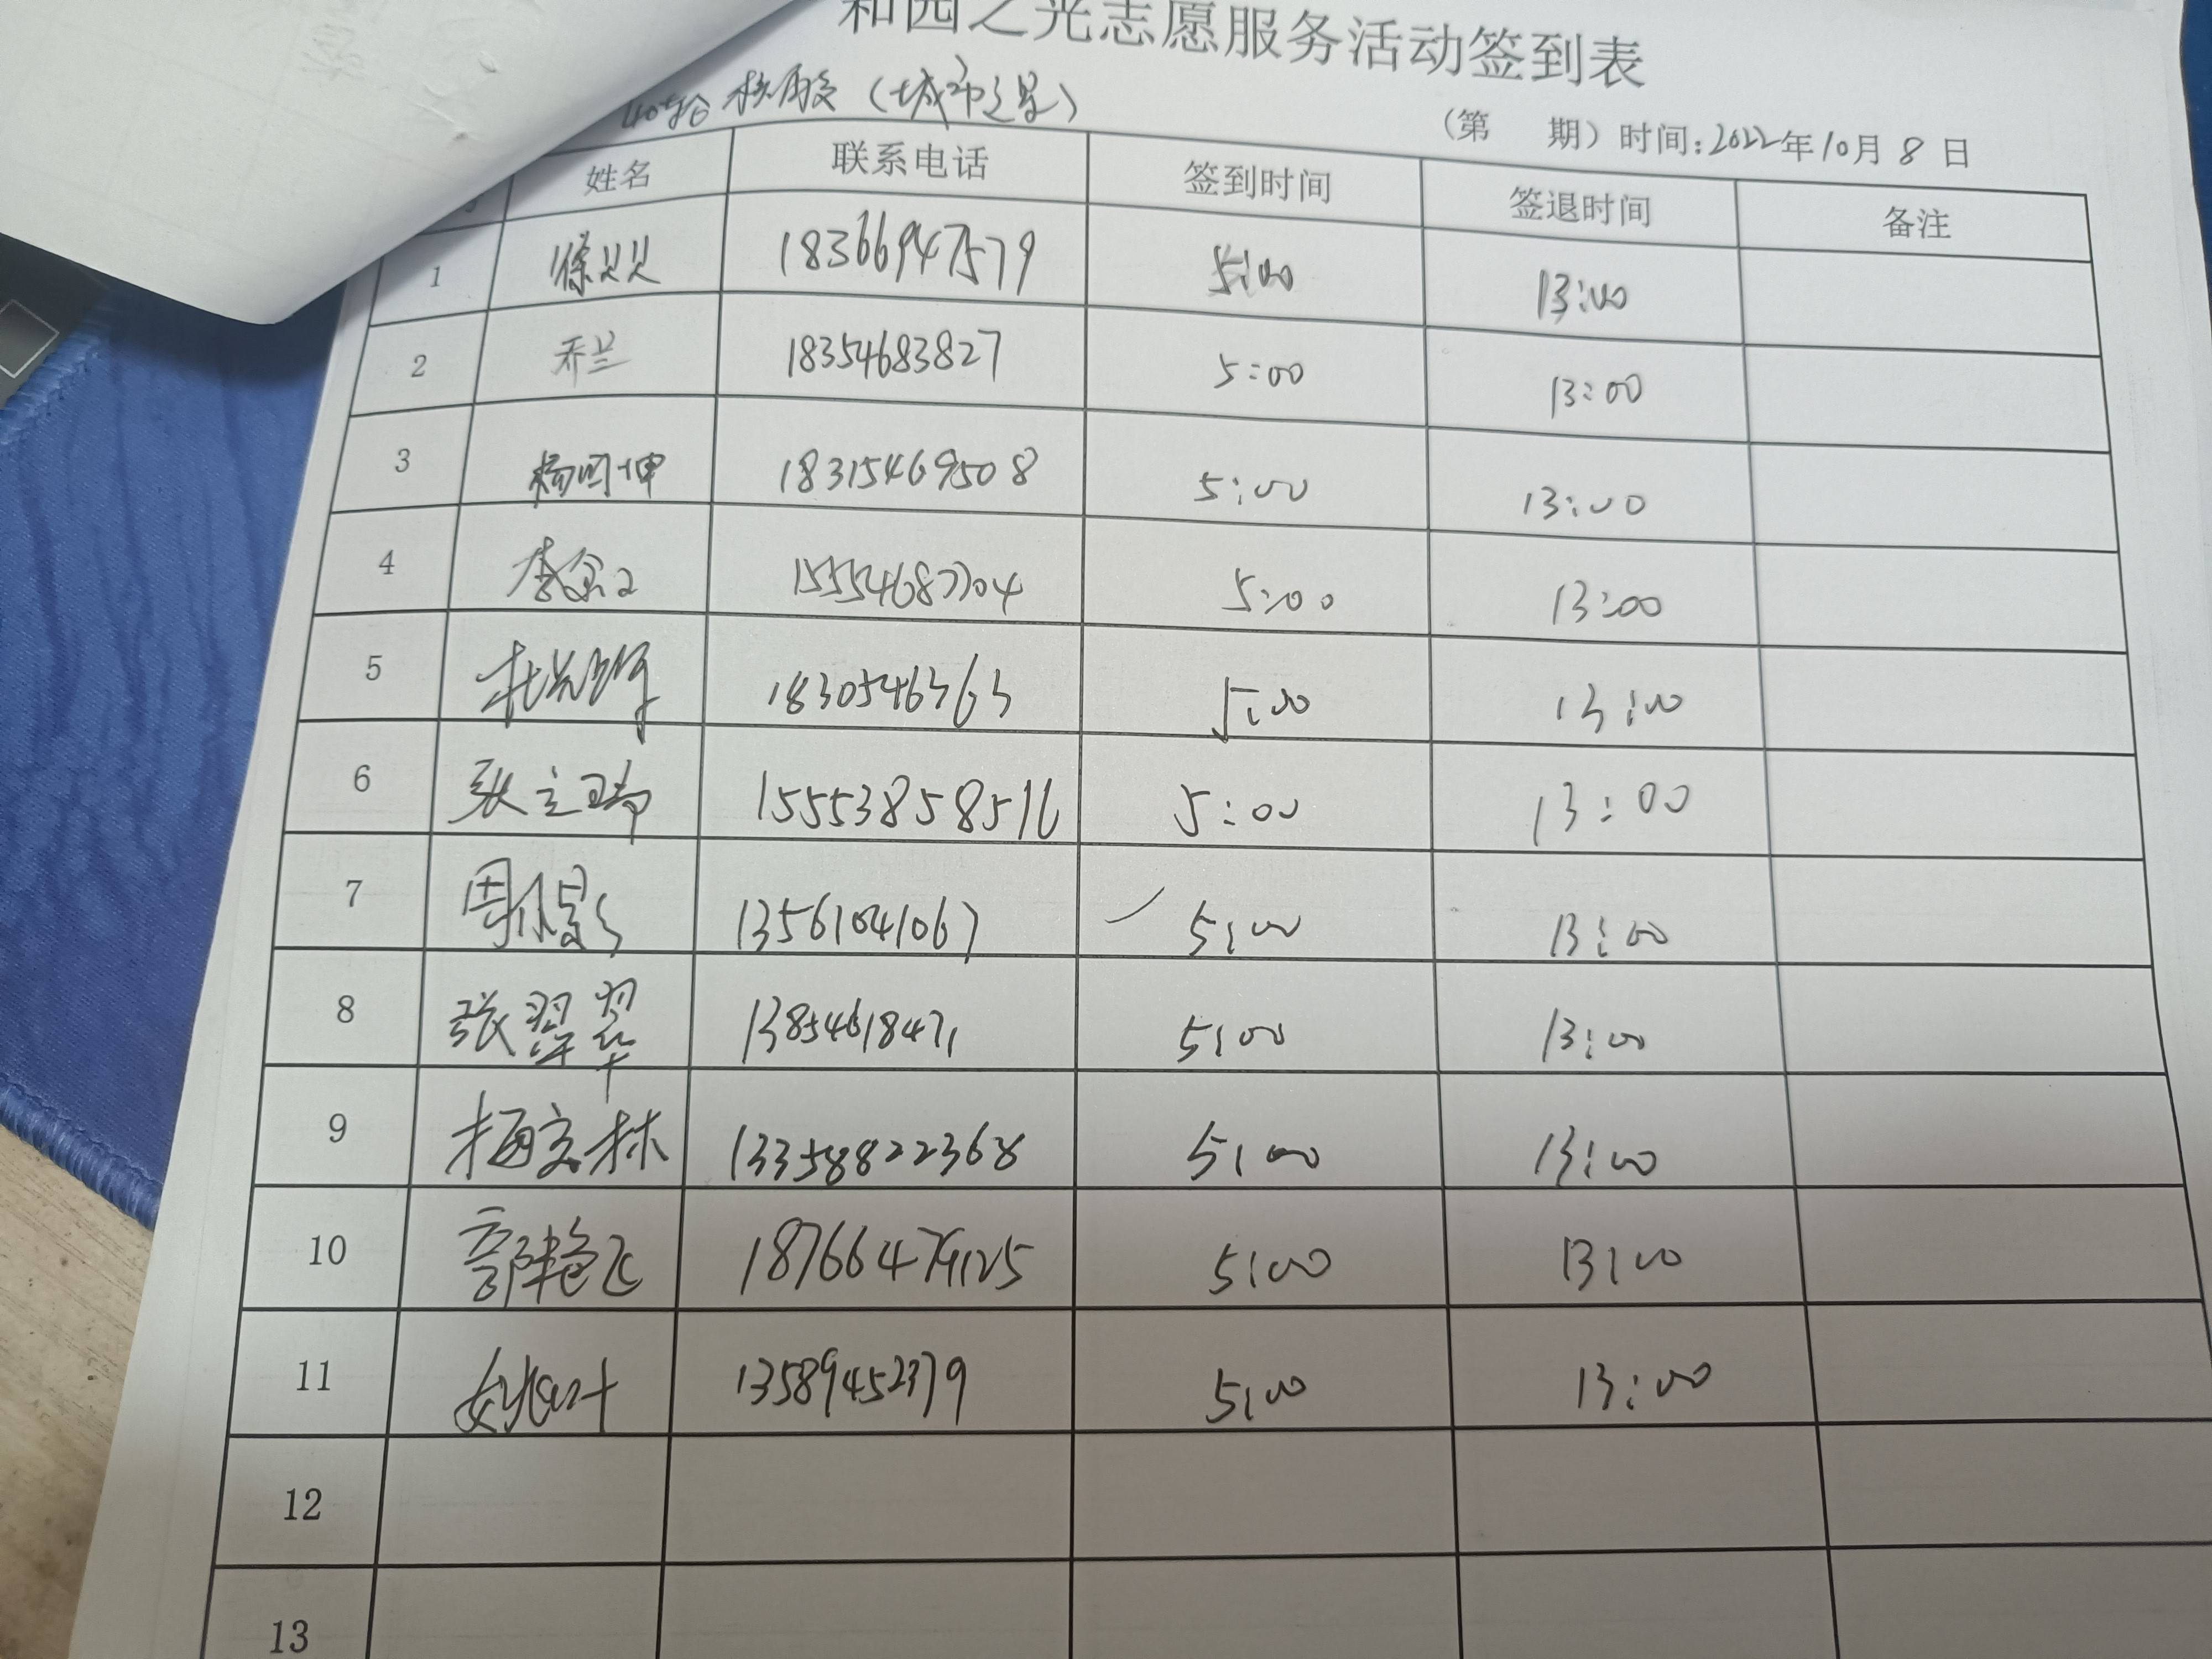 和园之光志愿服务活动签到表
40轮核酸（城市之星）
（第 期）时间：2022年10月8日
姓名 联系电话 签到时间 签退时间 备注
1 徐贝贝 18366947579 5:00 13:00
2 乔兰 18354683827 5:00 13:00
3 杨国坤 18315469508 5:00 13:00
4 李 15554687704 5:00 13:00
5 杜 1830546363 5:00 13:00
6 张立瑞 15553858516 5:00 13:00
7 周 13561041067 5:00 13:00
8 张翠翠 13854618471 5:00 13:00
9 梅文林 13358822368 5:00 13:00
10 郭艳飞 18766479125 5:00 13:00
11 姚 13589452379 5:00 13:00
12
13